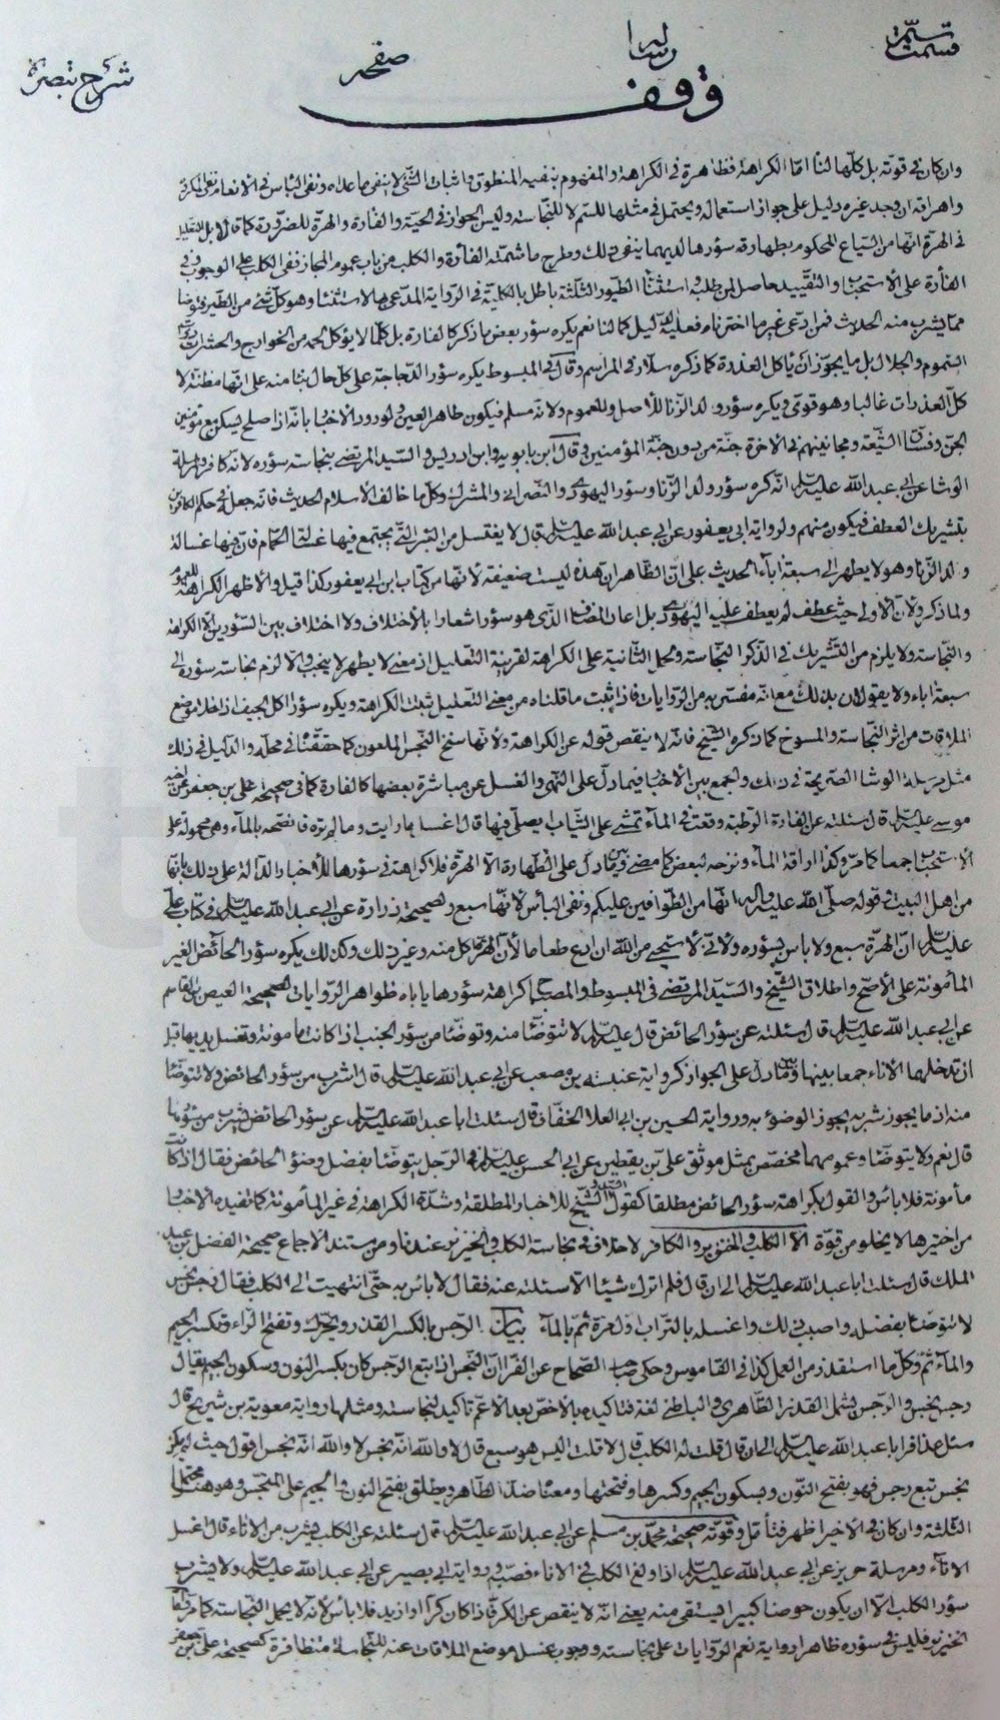 رساله
صفحه
شرح تبصره
وقف
وان كان في قوته بل كلها لنا اما الكراهة فظاهرة في الكراهة والمفهوم بنفيه المنطوق واثبات الشئ لا ينفي ما عداه ونفي الباس في الانعام
واهراقه ان وجد غيره دليل على جواز استعماله ويحتمل في مثلها للسم لا للنجاسة وليس الجواز في الحية والفارة والهرة للضرورة كما قال بل
في الهرة انها من السباع المحكوم بطهارة سؤرها لديهما ينفي ذلك وطرح ما شمته الفأرة والكلب من باب عموم المجاز ففي الكلب على الوجوب وفي
الفأرة على الاستحباب والتقييد حاصل لمن طلبه استثنا الطيور الثلثة باطل بالكلية في الرواية المدعى بها الاستثنا وهو كل شئ من الطير يتوضأ
مما يشرب منه الحديث فمن ادعى غير ما اخترناه فعليه الدليل كما لنا نعم يكره سؤر بعض ما ذكر كالفارة بل كلما لا يؤكل لحمه من الخوارج والحشرات
السموم والجلال بل ما يجوز ان ياكل العذرة كما ذكره سلار في المراسم وقال في المبسوط يكره سؤر الدجاجة على كل حال بنا منه على انها مظنة لا
كل العذرات غالبا وهو قوي ويكره سؤر ولد الزنا للأصل وللعموم ولانه مسلم فيكون طاهر العين ولورود الاخبار بانه اذا صلح يسكن مع مؤمنين
الجن وفساق الشيعة ومجانينهم في الاخرة جنة من دون جنة المؤمنين وقال ابن بابويه وابن ادريس والسيد المرتضى بنجاسة سؤره لانه كافر ولمرسلة
الوشا عن ابي عبدالله عليه السلام انه كره سؤر ولد الزنا وسؤر اليهودي والنصراني والمشرك وكل ما خالف الاسلام الحديث فانه جعل في حكم الكافرين
بتشريك العطف فيكون منهم ولرواية ابي يعفور عن ابي عبد الله عليه السلام قال لا يغتسل من البئر التي يجتمع فيها غسالة الحمام فان فيها غسالة
ولد الزنا وهو لا يطهر الى سبعة اباء الحديث على ان الظاهر ان هذه ليست ضعيفة لانها من كتاب ابن ابي يعفور كذا قيل والاظهر الكراهة للعموم
ولما ذكر ولان الاولى حيث عطف لم يعطف عليه اليهودي بل اعاد المضاف الذي هو سؤر اشعارا بالاختلاف ولا اختلاف بين السؤرين الا الكراهة
والنجاسة ولا يلزم من التشريك في الذكر النجاسة ومحمل الثانية على الكراهة لقرينة التعليل اذ معنى لا يطهر لا ينجب والا لزم نجاسة سؤره الى
سبعة اباء ولا يقولون بذلك مع انه مفسر به من الروايات فاذا ثبت ما قلناه من معنى التعليل ثبتت الكراهة ويكره سؤر اكل الجيف اذا خلا موضع
الملاقات من اثر النجاسة والمسوخ كما ذكره الشيخ فانه لا ينقص قوله عن الكراهة ولانها سنخ النجس الملعون كما حققنا في محله والدليل في ذلك
مثل مرسلة الوشا الصريحة في ذلك والجمع بين الاخبار فيما دل على النهي والغسل عن مباشرة بعضها كالفارة كما في صحيحة علي بن جعفر عن اخيه
موسى عليه السلام قال سئلته عن الفارة الرطبة وقعت في الماء تمشي على الثياب ايصلى فيها قال اغسل ما رايت وما لم تره فانضحه بالماء وهي محمولة على
الاستحباب جمعا كما مر وكذا اراقة الماء ونزحه لبعض كما مضى وبين ما دل على الطهارة الا الهرة فلا كراهة في سؤرها للأخبار الدالة على ذلك بانها
من اهل البيت في قوله صلى الله عليه واله انها من الطوافين عليكم ونفي الباس لانها سبع لصحيحة زرارة عن ابي عبدالله عليه السلام في كتاب علي
عليه السلام ان الهرة سبع ولا باس بسؤره ولاني لا استحيي من الله ان ادع طعاما لان الهر اكل منه وغير ذلك وكذلك يكره سؤر الحائض الغير
المأمونة على الأصح واطلاق الشيخ والسيد المرتضى في المبسوط والمصباح كراهة سؤرها ياباه ظواهر الروايات لصحيحة العيص بن القاسم
عن ابي عبدالله عليه السلام قال سئلته عن سؤر الحائض قال عليه السلام لا تتوضأ منه وتوضأ من سؤر الجنب اذا كانت مامونة وتغسل يديها قبل
ان تدخلها الاناء جمعا بينها وبين ما دل على الجواز كرواية عنبسة بن مصعب عن ابي عبدالله عليه السلام قال اشرب من سؤر الحائض ولا تتوضأ
منه اذ ما يجوز شربه يجوز الوضوء به ورواية الحسين بن ابي العلا الخفاف قال سئلت ابا عبدالله عليه السلام عن سؤر الحائض يشرب من سؤرها
قال نعم ولا يتوضأ وعمومهما مخصص بمثل موثق علي بن يقطين عن ابي الحسن عليه السلام في الرجل يتوضأ بفضل وضوء الحائض فقال اذا كانت
مأمونة فلا باس والقول بكراهة سؤر الحائض مطلقا كقول الشيخ للأخبار المطلقة وشدة الكراهة في غير المأمونة كما تفيده الاخبار
من اختيرها لا يخلو من قوة الا الكلب والخنزير والكافر لا خلاف في نجاسة الكلب والخنزير عندنا ومن مستند الاجماع صحيحة الفضل بن عبد
الملك قال سئلت ابا عبدالله عليه السلام الى ان قال فلم اترك شيئا الا سئلته عنه فقال لا باس به حتى انتهيت الى الكلب فقال رجس نجس
لا تتوضأ بفضله واصبب ذلك واغسله بالتراب اول مرة ثم بالماء بيان الرجس بالكسر القذر ويحرك وتفتح الراء وتكسر الجيم
والمأثم وكل ما استقذر من العمل كذا في القاموس وحكى صاحب الصحاح عن الفراء ان النجس اذا اتبع الرجس كان بكسر النون وسكون الجيم يقال
رجس نجس والرجس يشمل القذر الظاهري والباطني لغة فتاكيده بالاخص بعد الأعم تاكيد لنجاسته ومثلها رواية معوية بن شريح قال
سئل عذافر ابا عبدالله عليه السلام الى ان قال قلت له الكلب قال لا قلت اليس هو سبع قال لا والله انه نجس لا والله انه نجس اقول حيث لم يكن
نجس تبع رجس فهو بفتح النون وبسكون الجيم وكسرها وفتحها ومعناه ضد الطاهر ويطلق بفتح النون والجيم على المتنجس وهو هنا محتمل
الثلثة وان كان في الاخير اظهر فتأمل وقوة صحيحة محمد بن مسلم عن ابي عبدالله عليه السلام قال سئلته عن الكلب يشرب من الاناء قال اغسل
الاناء ومرسلة حريز عن ابي عبدالله عليه السلام اذا ولغ الكلب في الاناء فصبه ورواية ابي بصير عن ابي عبدالله عليه السلام ولا يشرب
سؤر الكلب الا ان يكون حوضا كبيرا يستقى منه يعني انه لا ينقص عن الكر فاذا كان كرا او ازيد فلا باس لانه لا يحمل النجاسة كما مر واما
الخنزير فليس في سؤره ظاهرا رواية نعم الروايات على نجاسته ووجوب غسل موضع الملاقات عنه للنجاسة متظافرة كصحيحة علي بن جعفر